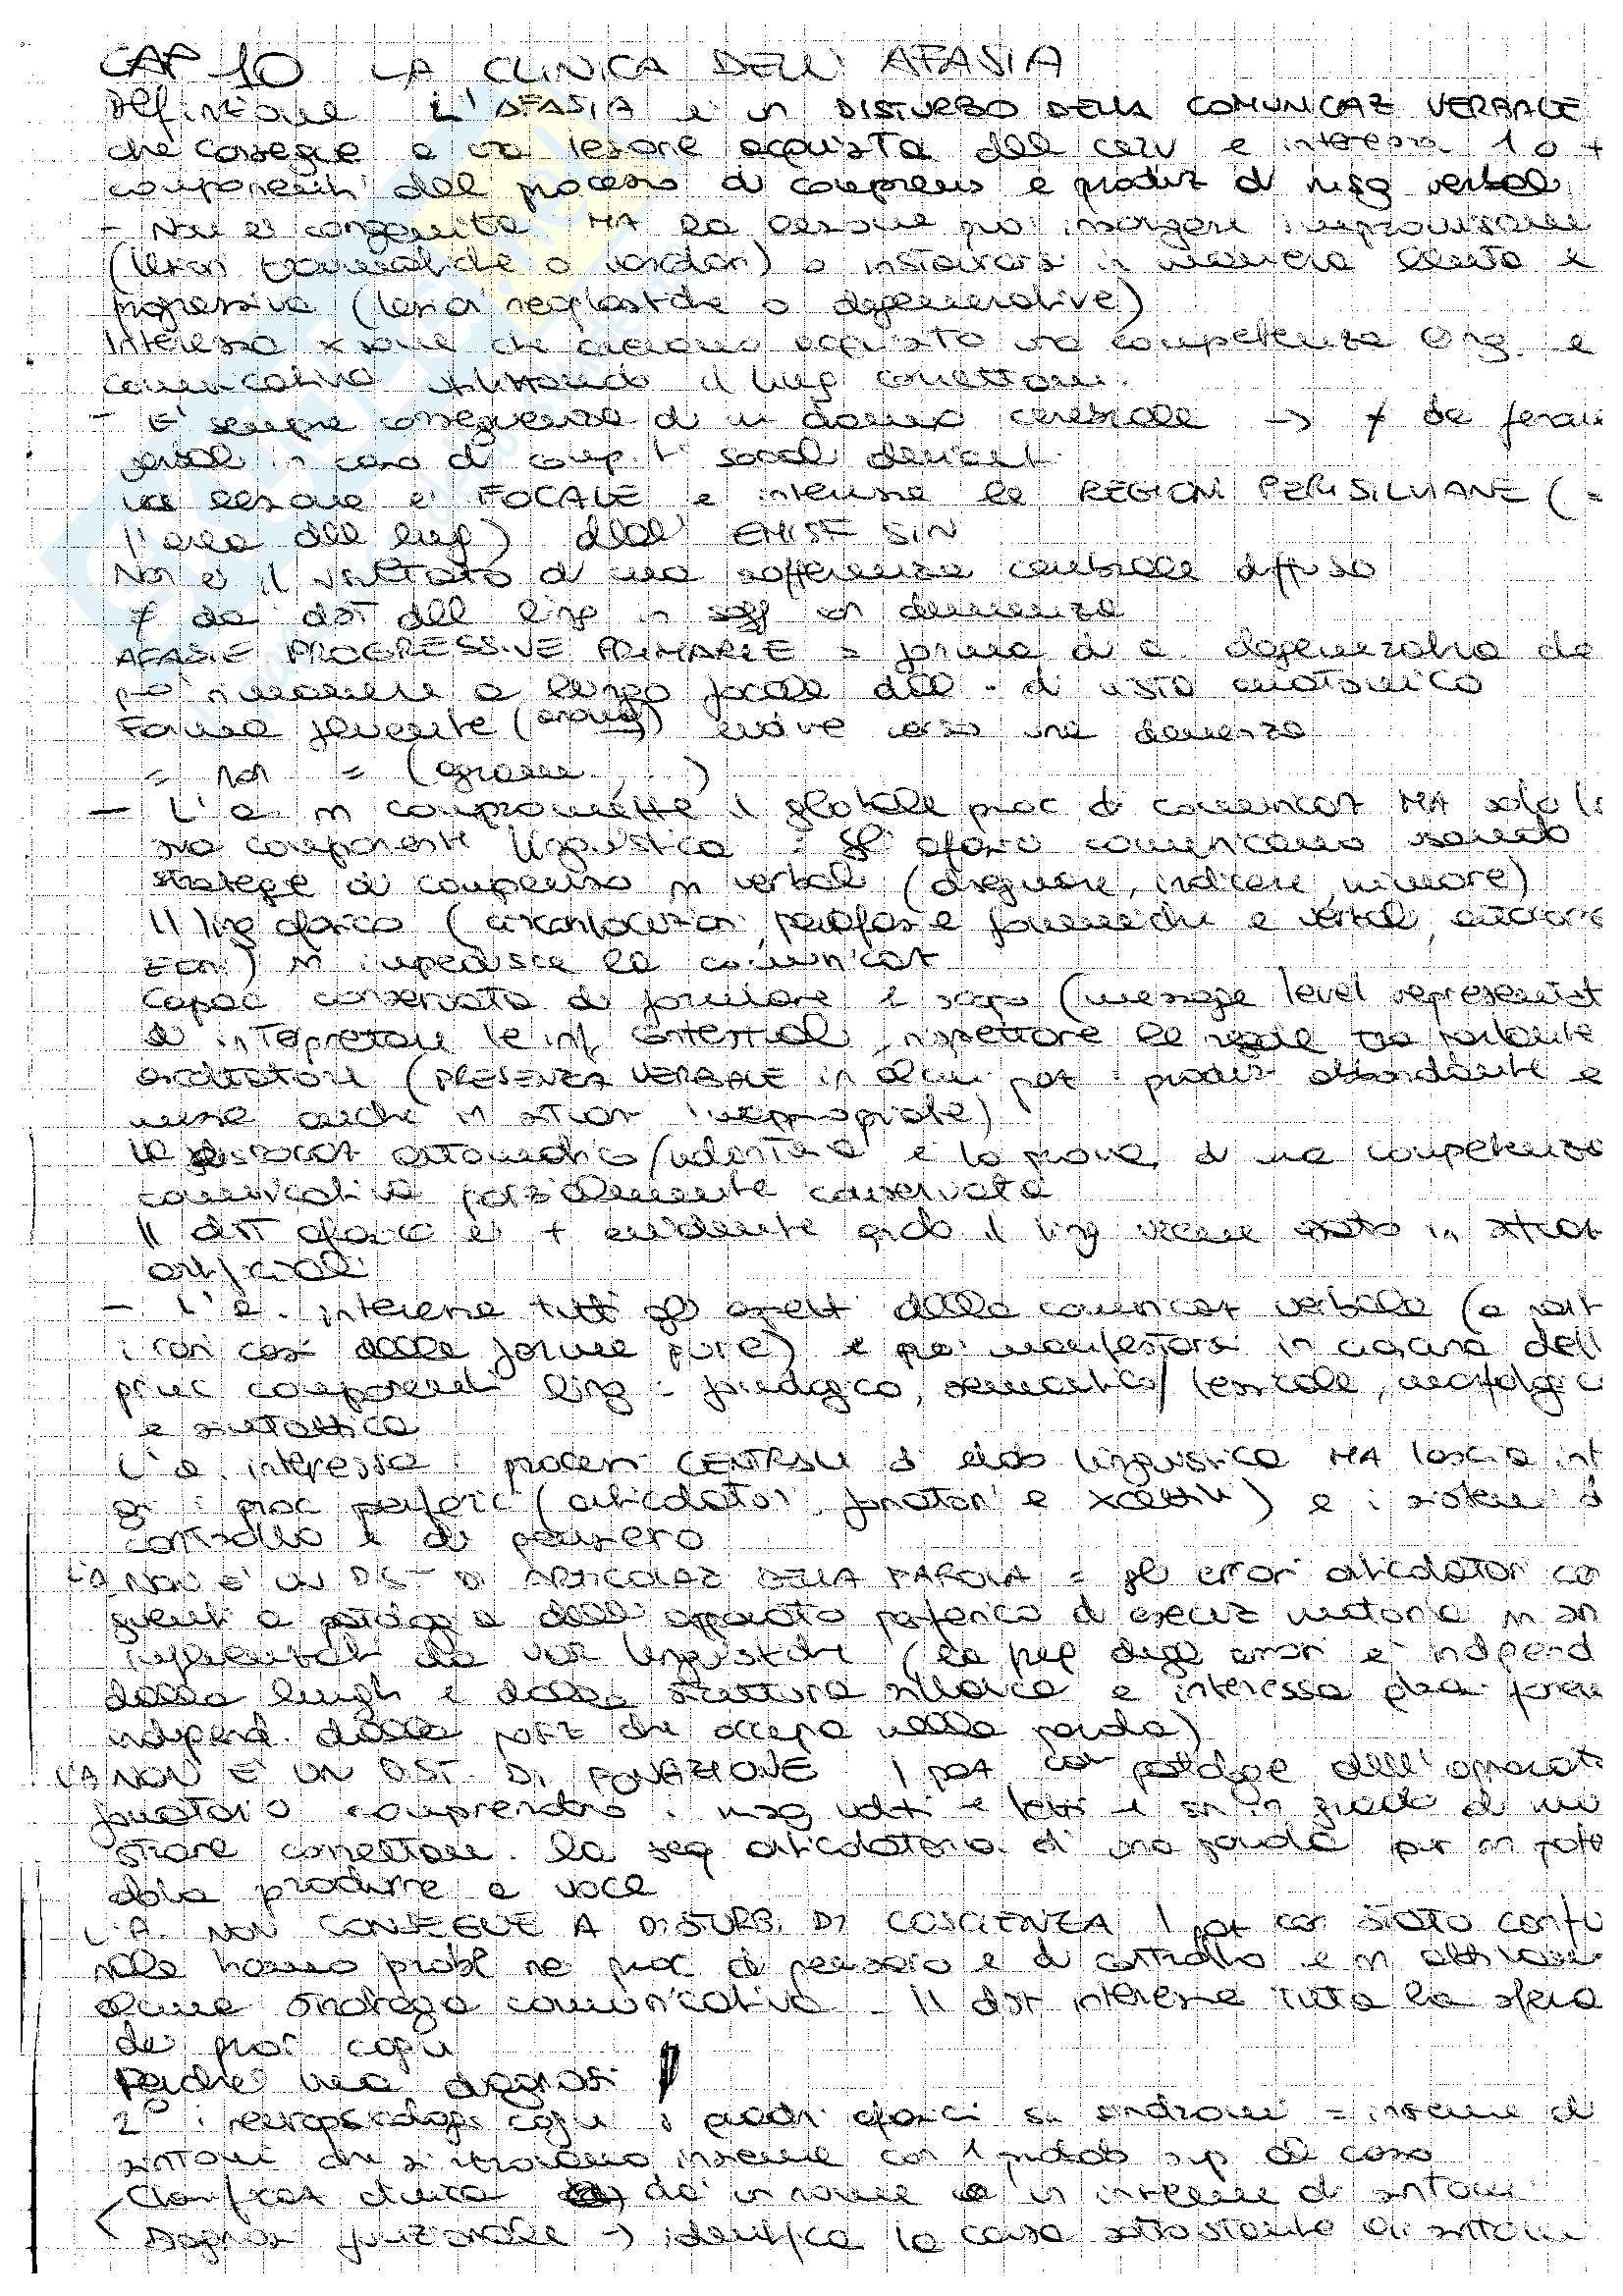 CAP 10 LA CLINICA DELL' AFASIA
Definizione L'AFASIA è un DISTURBO DELLA COMUNICAZ VERBALE
che consegue a una lesione acquisita del cerv e interessa 1 o +
componenti del processo di comprens e produz di msg verbali
- Non è congenita MA la lesione può insorgere improvvisame
(lesioni traumatiche o vascolari) o instaurarsi in maniera lenta e
progressiva (lesioni neoplastiche o degenerative)
Interessa xsone che avevano acquisito una competenza ling. e
comunicativa utilizzando il ling. correttam.
- E' sempre conseguenza di un danno cerebrale → ≠ da
in caso di comp.ti sociali devianti
La lesione è FOCALE e interessa le REGIONI PERISILVIANE (=
l'area del ling) dell' EMISF SIN
Non è il risultato di una sofferenza cerebrale diffusa
≠ da dist del ling in sogg con demenza
AFASIE PROGRESSIVE PRIMARIE = forma di a. degenerativa che
può rimanere a lungo focale dal . di vista anatomico
Forma fluente (anomia) evolve verso una demenza
= non = (gramm ...)
- L'a. n compromette il globale proc di comunicaz MA solo la
sua componente linguistica : gli afasici comunicano usando
strategie di compenso n verbali (disegnare, indicare, mimare)
Il ling afasico (circonlocuzioni, parafasie fonemiche e verbali, autocorre
zioni) n impedisce la comunicaz
Capac conservata di formulare lo scopo (message level representat
di interpretare le inf contestuali, rispettare le regole tra parlante
ascoltatore (PRESENZA VERBALE in alcuni paz : produz abbondante e
anche in situaz inappropriate)
La dissociaz automatico/volontario è la prova di una competenza
comunicativa parzialmente conservata
Il dist afasico è + evidente qndo il ling viene usato in situaz
artificiali
- L'a. interessa tutti gli aspetti della comunicaz verbale (a parte
i rari casi delle forme pure) e può manifestarsi in ciascuna delle
princ componenti ling : fonologico, semantico/lessicale, morfologica
e sintattica
L'a. interessa i processi CENTRALI di elab linguistica MA lascia int
gri i proc periferici (articolatori, fonatori e xcettivi) e i sistemi di
controllo e di pensiero
L'A NON E' UN DIST DI ARTICOLAZ DELLA PAROLA = gli errori articolatori con
guenti a patologia dell' apparato periferico di esecuz motoria n son
influenzati da var linguistiche (la freq degli errori è independ
dalla lungh e dalla struttura sillabica e interessa
independ. dalla posiz che occupa nella parola)
L'A NON E' UN DIST. DI FONAZIONE I paz con patologie dell' apparato
fonatorio comprendono i msg uditi e letti e sn in grado di mo
strare correttam. la seq articolatoria di una parola pur n poten
dola produrre a voce
L'A. NON CONSEGUE A DISTURBI DI COSCIENZA I paz con stato confu
sionale hanno probl nei proc di pensiero e di controllo e n attivano
alcuna strategia comunicativa. Il dist interessa tutta la sfera
dei proc cogn
Perché una diagnosi
2° i neuropsicologi cogn i quadri afasici sn sindromi = insieme di
sintomi che si trovano insieme con 1 probab sup al caso
Classificaz clinica dà un nome a un insieme di sintomi
Diagnosi funzionale → identifica la causa sottostante ai sintomi